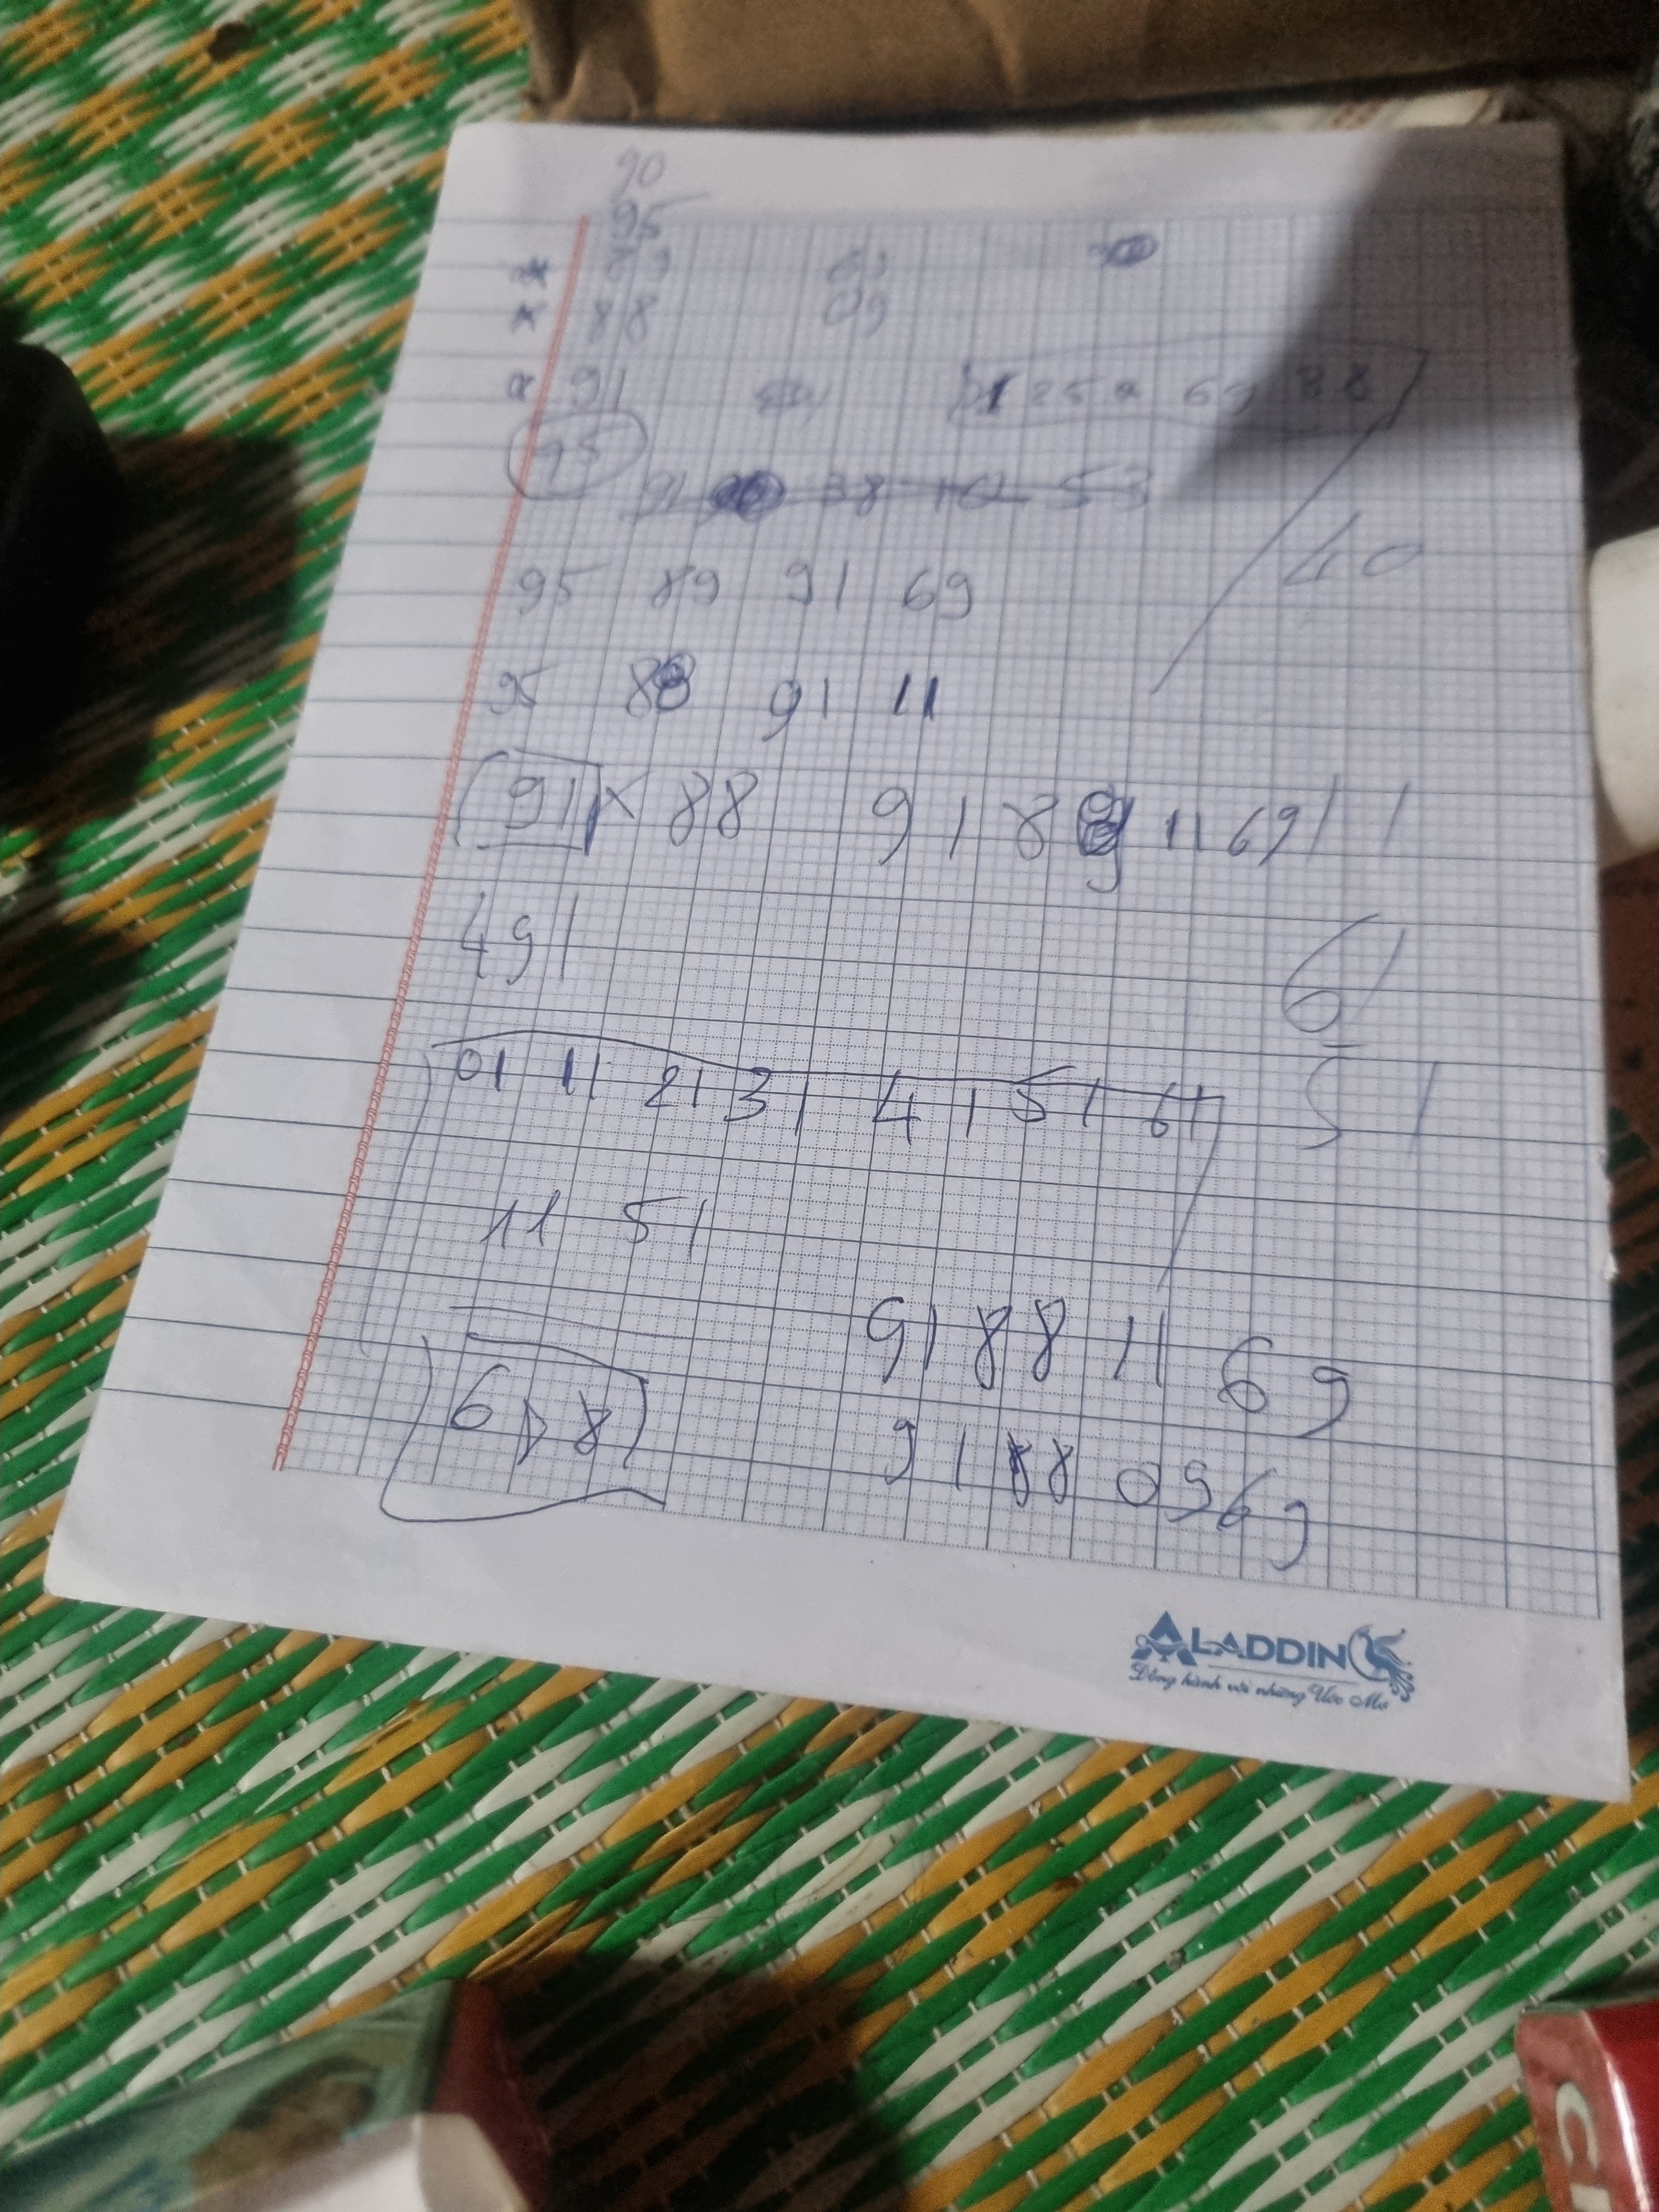 90
95
89 61
88 09
91 25 69 88
95
91 38 16 53
40
95 89 91 69
95 88 91 11
91 x 88 91 89 11 69 11
491
61
01 11 21 31 41 51 61
51
11 51
91 88 11 69
6 8
91 88 09 69
ALADDIN
Đồng hành với những Ước Mơ
C